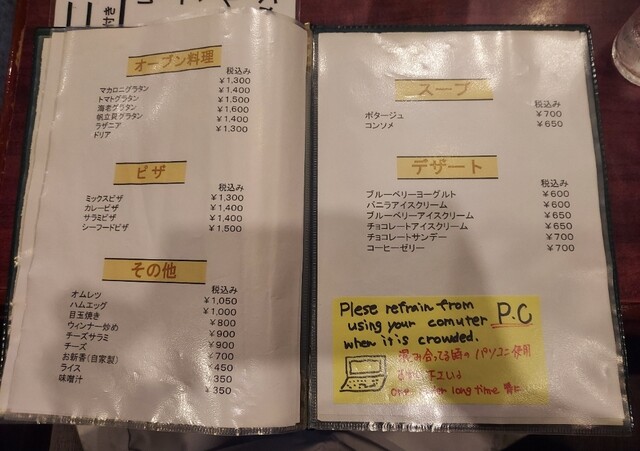 付き
オーブン料理
税込み
マカロニグラタン ￥1,300
トマトグラタン ￥1,400
海老グラタン ￥1,500
帆立貝グラタン ￥1,600
ラザニア ￥1,400
ドリア ￥1,300
ピザ
税込み
ミックスピザ ￥1,300
カレーピザ ￥1,400
サラミピザ ￥1,400
シーフードピザ ￥1,500
その他
税込み
オムレツ ￥1,050
ハムエッグ ￥1,000
目玉焼き ￥800
ウィンナー炒め ￥900
チーズサラミ ￥900
チーズ ￥700
お新香(自家製) ￥450
ライス ￥350
味噌汁 ￥350
スープ
税込み
ポタージュ ￥700
コンソメ ￥650
デザート
税込み
ブルーベリーヨーグルト ￥600
バニラアイスクリーム ￥600
ブルーベリーアイスクリーム ￥650
チョコレートアイスクリーム ￥650
チョコレートサンデー ￥700
コーヒーゼリー ￥700
Plese refrain from
using your comuter P.C
when it is crowded.
混み合ってる時のパソコン使用
long time